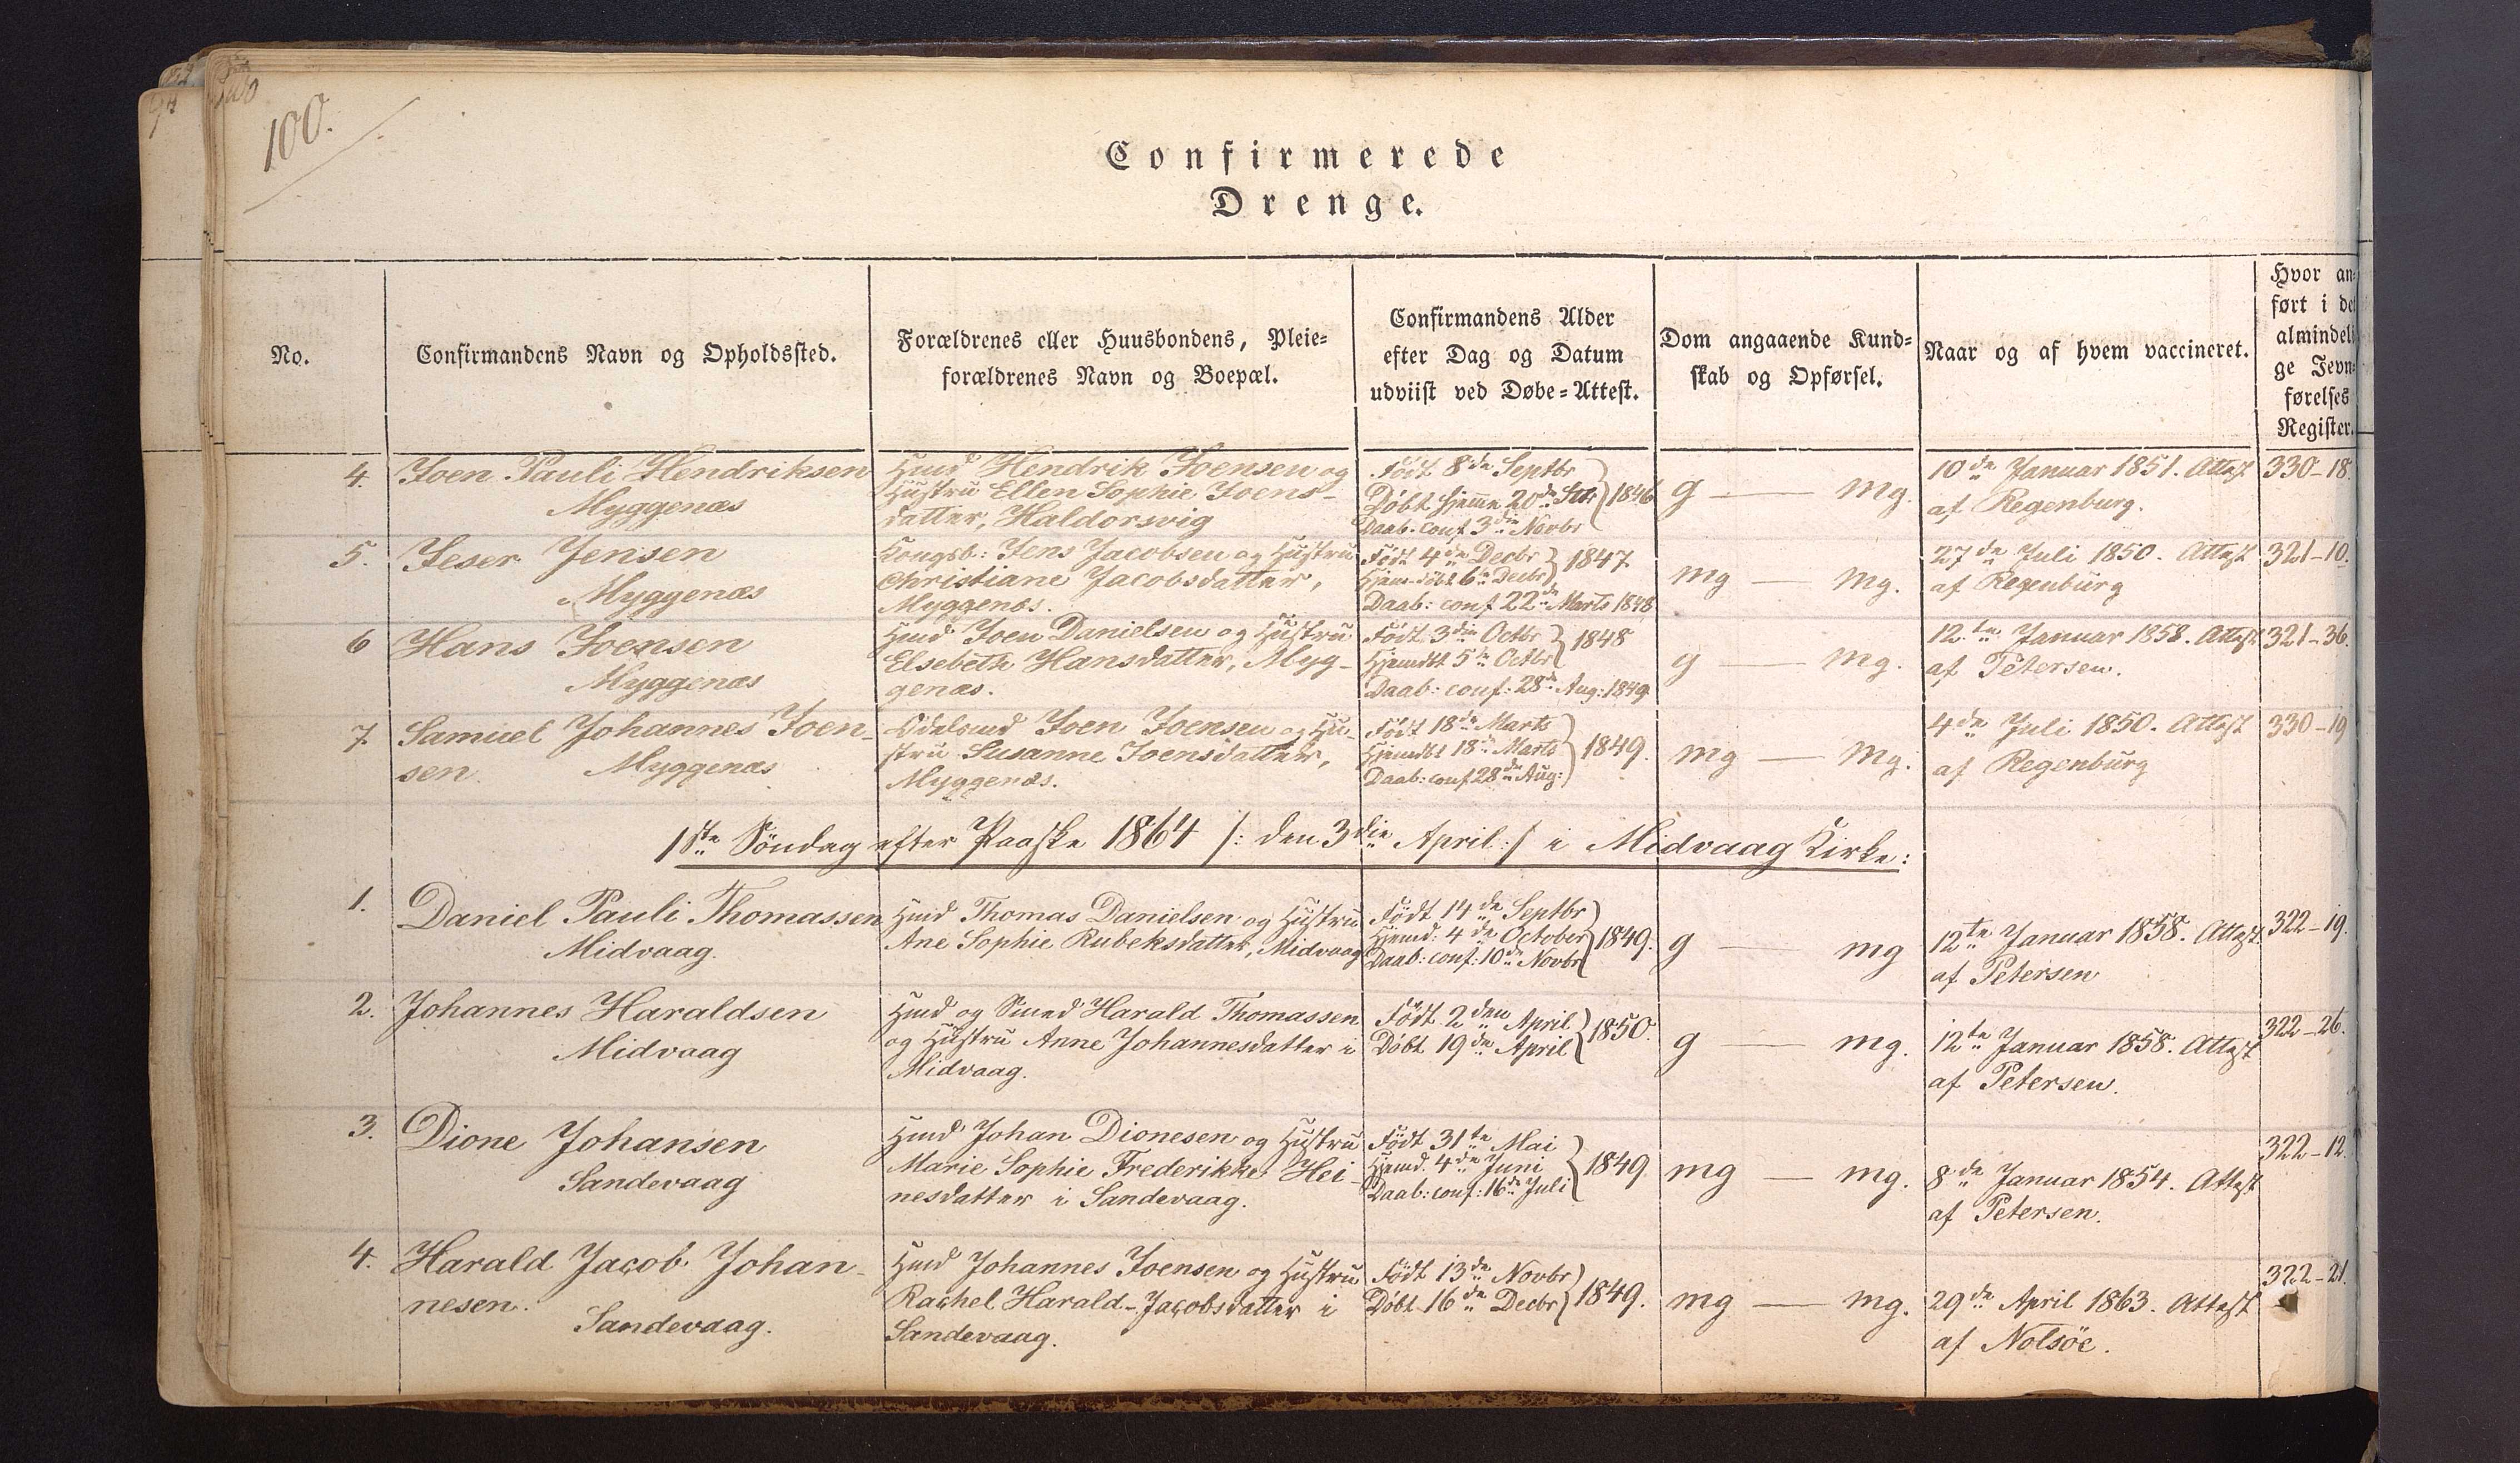 100.
Confirmerede
Drenge.
No.
Confirmandens Navn og Opholdssted.
Forældrenes eller Huusbondens, Pleie-
forældrenes Navn og Boepæl.
Confirmandens Alder
efter Dag og Datum
udviist ved Døbe-Attest.
Dom angaaende Kund-
skab og Opførsel.
Naar og af hvem vaccineret.
Hvor an-
ført i de
almindeli
ge Jevn-
førelses
Register.
4. Joen Pauli Hendriksen
Myggenæs
Hmd Hendrik Joensen og
Hustru Ellen Sophie Joens-
datter, Haldorsvig
Født 8de Septbr
Døbt hjemme 20de 1846
Daab. conf 3die Novbr
g — mg.
10de Januar 1851. Attest
af Regenburg.
330-18.
5. Jeser Jensen
Myggenæs
Kongsb: Jens Jacobsen og Hustru
Christiane Jacobsdatter,
Myggenæs.
Født 4de Decbr 1847
Hjem-døbt 6te Decbr
Daab: conf 22de Marts 1848
mg — mg.
27de Juli 1850. Attest
af Regenburg
321-10.
6 Hans Joensen
Myggenæs
Hmd Joen Danielsen og Hustru
Elsebeth Hansdatter, Myg-
genæs.
Født 3die Octbr 1848
Hjemdbt 5te Octbr
Daab: conf: 28d Aug: 1849
g — mg.
12te Januar 1858. Attest
af Petersen.
321-36.
7. Samuel Johannes Joen-
sen. Myggenæs
Odelsmd Joen Joensen og Hu-
stru Susanne Joensdatter,
Myggenæs.
Født 18de Marts
Hjemdbt 18de Marts 1849.
Daab: conf 28de Aug:
mg — mg.
4de Juli 1850. Attest
af Regenburg
330-19
1ste Söndag efter Paaske 1864 /: den 3die April :/ i Midvaag Kirke:
1. Daniel Pauli Thomassen
Midvaag.
Hmd Thomas Danielsen og Hustru
Ane Sophie Rubeksdatter, Midvaag
Født 14de Septbr
Hjemd: 4de October 1849.
Daab: conf: 10de Novbr
g — mg
12te Januar 1858. Attest.
af Petersen
322-19.
2. Johannes Haraldsen
Midvaag
Hmd og Smed Harald Thomassen
og Hustru Anne Johannesdatter i
Midvaag.
Født 2den April 1850.
Døbt 19de April
g — mg.
12te Januar 1858. Attest
af Petersen.
322-26.
3. Dione Johansen
Sandevaag
Hmd Johan Dionesen og Hustru
Marie Sophie Frederikke Hei-
nesdatter i Sandevaag.
Født 31te Mai
Hjemd. 4de Juni 1849
Daab: conf: 16de Juli
mg — mg.
8de Januar 1854. Attest
af Petersen.
322-12
4. Harald Jacob Johan-
nesen.
Sandevaag.
Hmd Johannes Joensen og Hustru
Rachel Harald-Jacobsdatter i
Sandevaag.
Født 13de Novbr 1849.
Døbt 16de Decbr
mg — mg.
29de April 1863. Attest
af Nolsöe.
322-21.